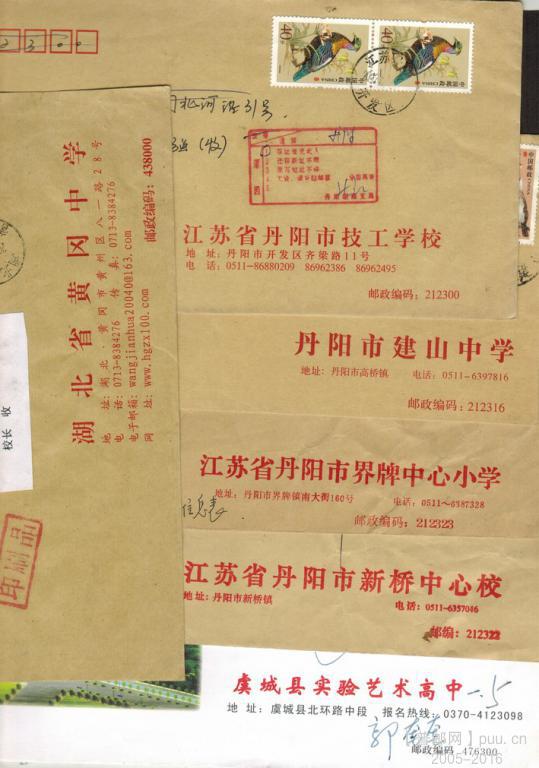 2300
40
中国邮政 CHINA
40
中国邮政 CHINA
江苏
开发区
31号
(收)
江苏省丹阳市技工学校
地 址：丹阳市开发区齐梁路11号
电 话：0511-86880209 86962386 86962495
邮政编码：212300
丹阳市建山中学
地址：丹阳市高桥镇 电话：0511-6397816
邮政编码：212316
江苏省丹阳市界牌中心小学
地址：丹阳市界牌镇南大街160号 电话：0511-6387328
邮政编码：212323
信息表
江苏省丹阳市新桥中心校
地址：丹阳市新桥镇 电话：0511-6357046
邮编：212322
湖北省黄冈中学
地 址：湖北·黄冈市黄州区八一路28号
电 话：0713-8384276 传 真：0713-8384276
电子邮箱：wangjianhua20040@163.com
网 址：www.hgzx100.com 邮政编码：438000
校长 收
印刷品
中国邮政 CHINA
虞城县实验艺术高中
地 址：虞城县北环路中段 报名热线：0370-4123098
邮政编码 476300
网】puu.cn
2005-2016